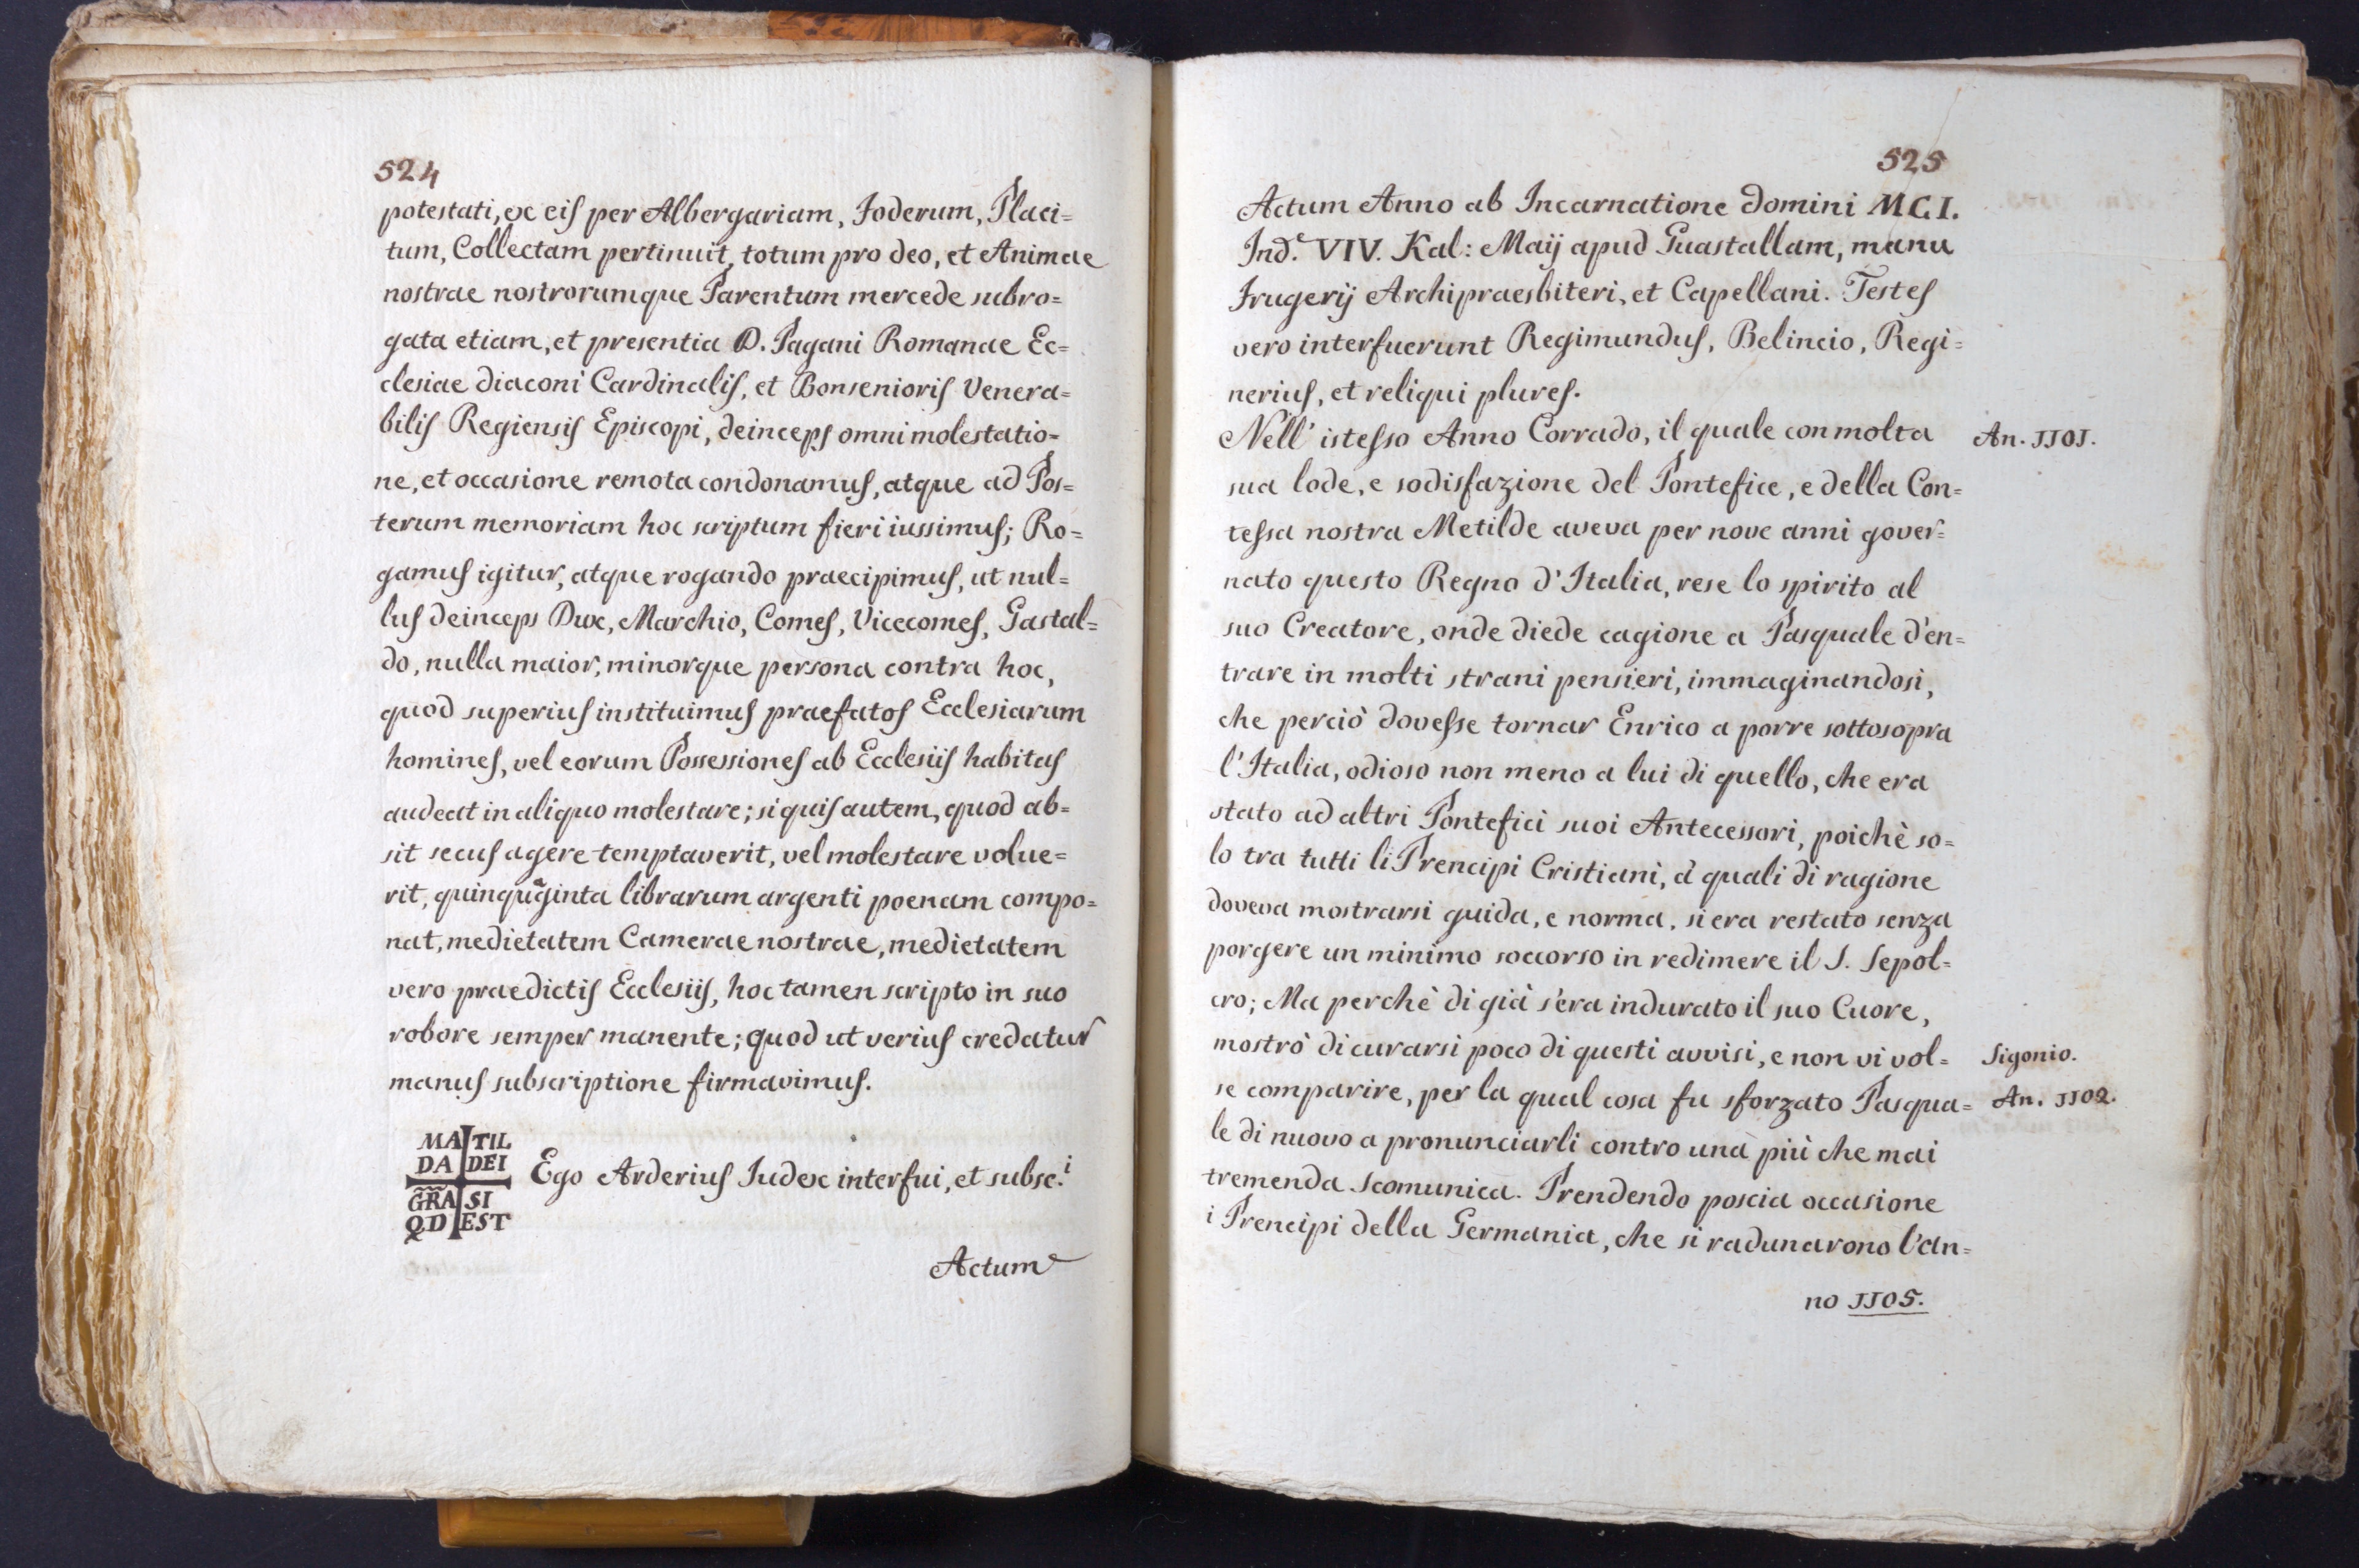 524
potestati, ex eis per Albergariam, Foderum, Placi=
tum, Collectam pertinuit, totum pro deo, et Animae
nostrae nostrorumque Parentum mercede subro=
gata etiam, et presentia D. Pagani Romanae Ec=
clesiae diaconi Cardinalis, et Bonsenioris Venera=
bilis Regiensis Episcopi, deinceps omni molestatio=
ne, et occasione remota condonamus, atque ad Pos=
terum memoriam hoc scriptum fieri iussimus; Ro=
gamus igitur, atque rogando praecipimus, ut nul=
lus deinceps Dux, Marchio, Comes, Vicecomes, Gastal=
do, nulla maior, minorque persona contra hoc,
quod superius instituimus praefatos Ecclesiarum
homines, vel eorum Possessiones ab Ecclesiis habitas
audeat in aliquo molestare; si quis autem, quod ab=
sit secus agere temptaverit, vel molestare volue=
rit, quinquaginta librarum argenti poenam compo=
nat, medietatem Camerae nostrae, medietatem
vero praedictis Ecclesiis, hoc tamen scripto in suo
robore semper manente; quod ut verius credatur
manus subscriptione firmavimus.
MA TIL
DA DEI
GR̃A SI
QD EST
Ego Arderius Iudex interfui, et subsc.i
Actum
525
Actum Anno ab Incarnatione Domini MCI.
Ind.e VIV. Kal: Maij apud Guastallam, manu
Frugerij Archipraesbiteri, et Capellani. Testes
vero interfuerunt Regimundus, Belincio, Regi=
nerius, et reliqui plures.
Nell' istesso Anno Corrado, il quale con molta
An. 1101.
sua lode, e sodisfazione del Pontefice, e della Con=
tessa nostra Metilde aveva per nove anni gover=
nato questo Regno d'Italia, rese lo spirito al
suo Creatore, onde diede cagione a Pasquale d'en=
trare in molti strani pensieri, immaginandosi,
che perciò dovesse tornar Enrico a porre sottosopra
l'Italia, odioso non meno a lui di quello, che era
stato ad altri Pontefici suoi Antecessori, poichè so=
lo tra tutti li Prencipi Cristiani, à quali di ragione
doveva mostrarsi guida, e norma, si era restato senza
porgere un minimo soccorso in redimere il S. Sepol=
cro; Ma perchè di già s'era indurato il suo Cuore,
mostrò di curarsi poco di questi avvisi, e non vi vol=
Sigonio.
se comparire, per la qual cosa fu sforzato Pasqua=
An. 1102.
le di nuovo a pronunciarli contro una più che mai
tremenda scomunica. Prendendo poscia occasione
i Prencipi della Germania, che si radunarono l'an=
no 1105.